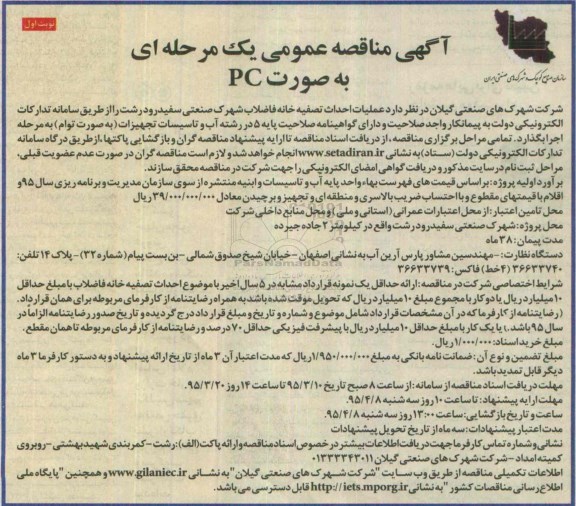 نوبت اول
سازمان صنایع کوچک و شهرک‌های صنعتی ایران
آگهی مناقصه عمومی یک مرحله ای
به صورت PC
شرکت شهرک های صنعتی گیلان در نظر دارد عملیات احداث تصفیه خانه فاضلاب شهرک صنعتی سفیدرود رشت را از طریق سامانه تدارکات
الکترونیکی دولت به پیمانکار واجد صلاحیت و دارای گواهینامه صلاحیت پایه ۵ در رشته آب و تاسیسات تجهیزات (به صورت توام) به مرحله
اجرا بگذارد. تمامی مراحل برگزاری مناقصه، از دریافت اسناد مناقصه تا ارایه پیشنهاد مناقصه گران و بازگشایی پاکتها، از طریق درگاه سامانه
تدارکات الکترونیکی دولت (ستاد) به نشانی www.setadiran.ir انجام خواهد شد و لازم است مناقصه گران در صورت عدم عضویت قبلی،
مراحل ثبت نام در سایت مذکور و دریافت گواهی امضای الکترونیکی را جهت شرکت در مناقصه محقق سازند.
برآورد اولیه پروژه: براساس قیمت های فهرست بهاء واحد پایه آب و تاسیسات و ابنیه منتشره از سوی سازمان مدیریت و برنامه ریزی سال ۹۵ و
اقلام با قیمتهای مقطوع و با احتساب ضریب بالاسری و منطقه ای و تجهیز و برچیدن معادل ۳۹/۰۰۰/۰۰۰/۰۰۰ ریال
محل تامین اعتبار: از محل اعتبارات عمرانی (استانی و ملی) و محل منابع داخلی شرکت
محل پروژه: شهرک صنعتی سفیدرود رشت واقع در کیلومتر ۲ جاده جیرده
مدت پیمان: ۳۸ ماه
دستگاه نظارت: -مهندسین مشاور پارس آرین آب به نشانی اصفهان - خیابان شیخ صدوق شمالی - بن بست پیام (شماره ۳۲) - پلاک ۱۴ تلفن:
۳۶۶۳۳۷۴۰ (۴ خط) فاکس: ۳۶۶۳۳۷۳۹
شرایط اختصاصی شرکت در مناقصه: ارائه حداقل یک نمونه قرارداد مشابه در ۵ سال اخیر با موضوع احداث تصفیه خانه فاضلاب با مبلغ حداقل
۱۰ میلیارد ریال یا دو کار با مجموع مبلغ ۱۰ میلیارد ریال که تحویل موقت شده باشد به همراه رضایتنامه از کارفرمای مربوطه برای همان قرارداد.
(رضایتنامه از کارفرما که در آن مشخصات قرارداد شامل موضوع و شماره و تاریخ و مبلغ قرارداد درج گردیده و تاریخ صدور رضایتنامه الزاما در
سال ۹۵ باشد.) یا یک کار با مبلغ حداقل ۱۰ میلیارد ریال با پیشرفت فیزیکی حداقل ۷۰ درصد و رضایتنامه از کارفرمای مربوطه تا همان مقطع.
مبلغ خرید اسناد: ۱/۰۰۰/۰۰۰ ریال.
مبلغ تضمین و نوع آن: ضمانت نامه بانکی به مبلغ ۱/۹۵۰/۰۰۰/۰۰۰ ریال که مدت اعتبار آن ۳ ماه از تاریخ ارائه پیشنهاد و به دستور کارفرما ۳ ماه
دیگر قابل تمدید باشد.
مهلت دریافت اسناد مناقصه از سامانه: از ساعت ۸ صبح تاریخ ۹۵/۳/۱۰ تا ساعت ۱۴ روز ۹۵/۳/۲۰.
مهلت ارایه پیشنهاد: تا ساعت ۱۰ روز سه شنبه ۹۵/۴/۸.
ساعت و تاریخ بازگشایی: ساعت ۱۳:۰۰ روز سه شنبه ۹۵/۴/۸.
مدت اعتبار پیشنهادات: سه ماه از تاریخ تحویل پیشنهادات
نشانی و شماره تماس کارفرما جهت دریافت اطلاعات بیشتر در خصوص اسناد مناقصه و ارائه پاکت (الف): رشت - کمربندی شهید بهشتی - روبروی
کمیته امداد - شرکت شهرک های صنعتی گیلان ۰۱۳۳۳۳۴۳۰۱۱
اطلاعات تکمیلی مناقصه از طریق وب سایت "شرکت شهرک های صنعتی گیلان" به نشانی www.gilaniec.ir و همچنین "پایگاه ملی
اطلاع رسانی مناقصات کشور" به نشانی http://iets.mporg.ir قابل دسترسی می باشد.